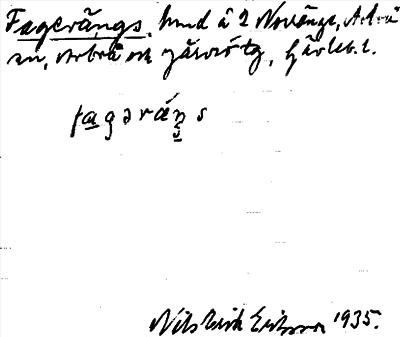 Fagerängs, hmd å 2 Novängs, Arbrå
sn, Arbrå och Järvsö tg, Gävleb. l.
fagəräŋs
Nils Erik Eriksson 1935.